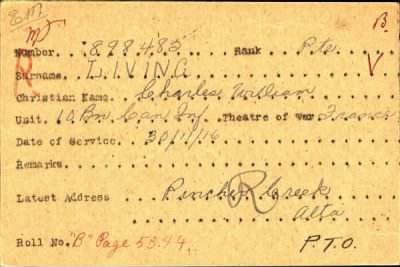 EM
B.
Number 898482 Rank Pte
Surname LIVING V
Christian Name Charles William
Unit. 10 Bn Can Inf Theatre of War France
Date of Service 30/11/16
Remarks
Latest Address Pincher Creek
Alta
R
Roll No. "B" Page 5394. P.T.O.